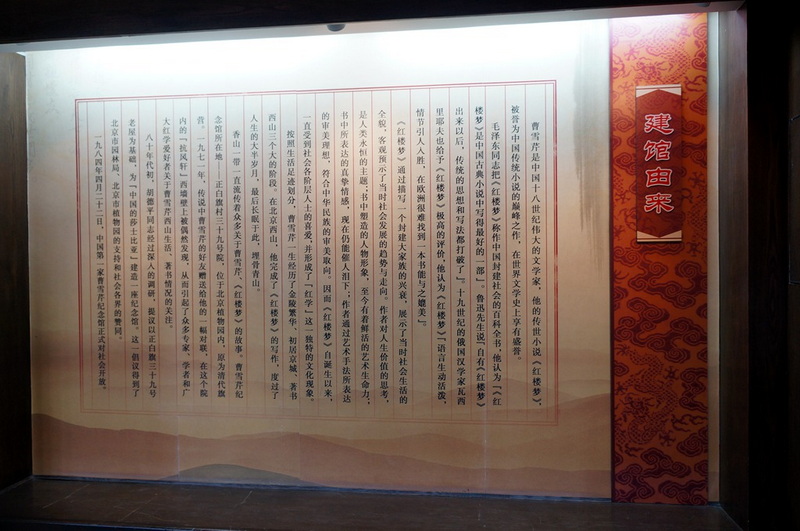 建馆由来
曹雪芹是中国十八世纪伟大的文学家，他的传世小说《红楼梦》，
被誉为中国传统小说的巅峰之作，在世界文学史上享有盛誉。
毛泽东同志把《红楼梦》称作中国封建社会的百科全书，他认为“《红
楼梦》是中国古典小说中写得最好的一部”。鲁迅先生说“自有《红楼梦》
出来以后，传统的思想和写法都打破了”。十九世纪的俄国汉学家瓦西
里耶夫也给予《红楼梦》极高的评价，他认为《红楼梦》“语言生动活泼，
情节引人入胜，在欧洲很难找到一本书能与之媲美”。
《红楼梦》通过描写一个封建大家族的兴衰，展示了当时社会生活的
全貌，客观预示了当时社会发展的趋势与走向。作者对人生价值的思考，
是人类永恒的主题；书中塑造的人物形象，至今有着鲜活的艺术生命力；
书中所表达的真挚情感，现在仍能催人泪下；作者通过艺术手法所表达
的审美理想，符合中华民族的审美取向。因而《红楼梦》自诞生以来，
一直受到社会各阶层人士的喜爱，并形成了“红学”这一独特的文化现象。
按照生活足迹划分，曹雪芹一生经历了金陵繁华、初居京城、著书
西山三个大的阶段。在北京西山，他完成了《红楼梦》的写作，度过了
人生的大半岁月，最后长眠于此，埋骨青山。
香山一带一直流传着众多关于曹雪芹、《红楼梦》的故事。曹雪芹纪
念馆所在地——正白旗村三十九号院，位于北京植物园内，原为清代旗
营。一九七一年，传说中曹雪芹的好友赠送给他的一幅对联，在这个院
内的“抗风轩”西墙壁上被偶然发现，从而引起了众多专家、学者和广
大红学爱好者关于曹雪芹西山生活、著书情况的关注。
八十年代初，胡德平同志经过深入的调研，提议以正白旗三十九号
老屋为基础，为“中国的莎士比亚”建造一座纪念馆。这一倡议得到了
北京市园林局、北京市植物园的支持和社会各界的赞同。
一九八四年四月二十二日，中国第一家曹雪芹纪念馆正式对社会开放。